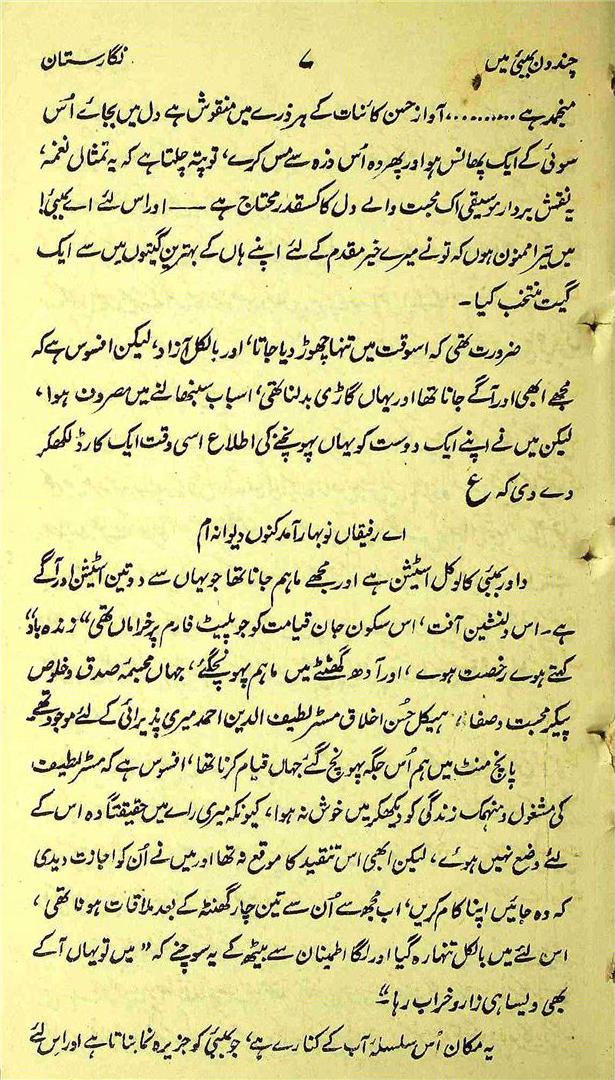 چند دن بمبئی میں ۷ نگارستان
منجمد ہے ..........، آواز حسن کائنات کے ہر ذرے میں منقوش ہے دل میں بجائے اُس
سوئی کے ایک پھانس ہو اور پھر وہ اُس ذرہ سے مس کرے، تو پتہ چلتا ہے کہ یہ تمثال نغمہ،
یہ نقش بردار موسیقی اک محبت والے دل کا کسقدر محتاج ہے —— اور اس لئے اے بمبئی!
میں تیرا ممنون ہوں کہ تو نے میرے خیر مقدم کے لئے اپنے ہاں کے بہترین گیتوں میں سے ایک
گیت منتخب کیا۔
ضرورت تھی کہ اسوقت میں تنہا چھوڑ دیا جاتا، اور بالکل آزاد، لیکن افسوس ہے کہ
مجھے ابھی اور آگے جانا تھا اور یہاں گاڑی بدلنا تھی، اسباب سنبھالنے میں مصروف ہوا،
لیکن میں نے اپنے ایک دوست کو یہاں پہونچنے کی اطلاع اسی وقت ایک کارڈ لکھکر
دے دی کہ ع
اے رفیقاں نوبہار آمد کنوں دیوانہ ام
داور بمبئی کا لوکل اسٹیشن ہے اور مجھے ماہم جانا تھا جو یہاں سے دو تین اسٹیشن اور آگے
ہے۔ اس دلنشین آفت، اس سکون جان قیامت کو جو پلیٹ فارم پر خراماں تھی "زندہ باد"
کہتے ہوے رخصت ہوے، اور آدھ گھنٹے میں ماہم پہونچگئے، جہاں مجسمۂ صدق و خلوص
پیکر محبت و صفا، ہیکل حُسن اخلاق مسٹر لطیف الدین احمد میری پذیرائی کے لئے موجود تھے
پانچ منٹ میں ہم اُس جگہ پہونچ گئے جہاں قیام کرنا تھا، افسوس ہے کہ مسٹر لطیف
کی مشغول و منہمک زندگی کو دیکھکر میں خوش نہ ہوا، کیونکہ میری راے میں حقیقتاً وہ اس کے
لئے وضع نہیں ہوئے، لیکن ابھی اس تنقید کا موقع نہ تھا اور میں نے اُن کو اجازت دیدی
کہ وہ جائیں اپنا کام کریں، اب مجھ سے اُن سے تین چار گھنٹہ کے بعد ملاقات ہونا تھی،
اس لئے میں بالکل تنہا رہ گیا اور لگا اطمینان سے بیٹھ کے یہ سوچنے کہ "میں تو یہاں آکے
بھی ویسا ہی زار و خراب رہا"۔
یہ مکان اُس سلسلۂ آب کے کنارے ہے، جو بمبئی کو جزیرہ نما بناتا ہے اور اس لئے